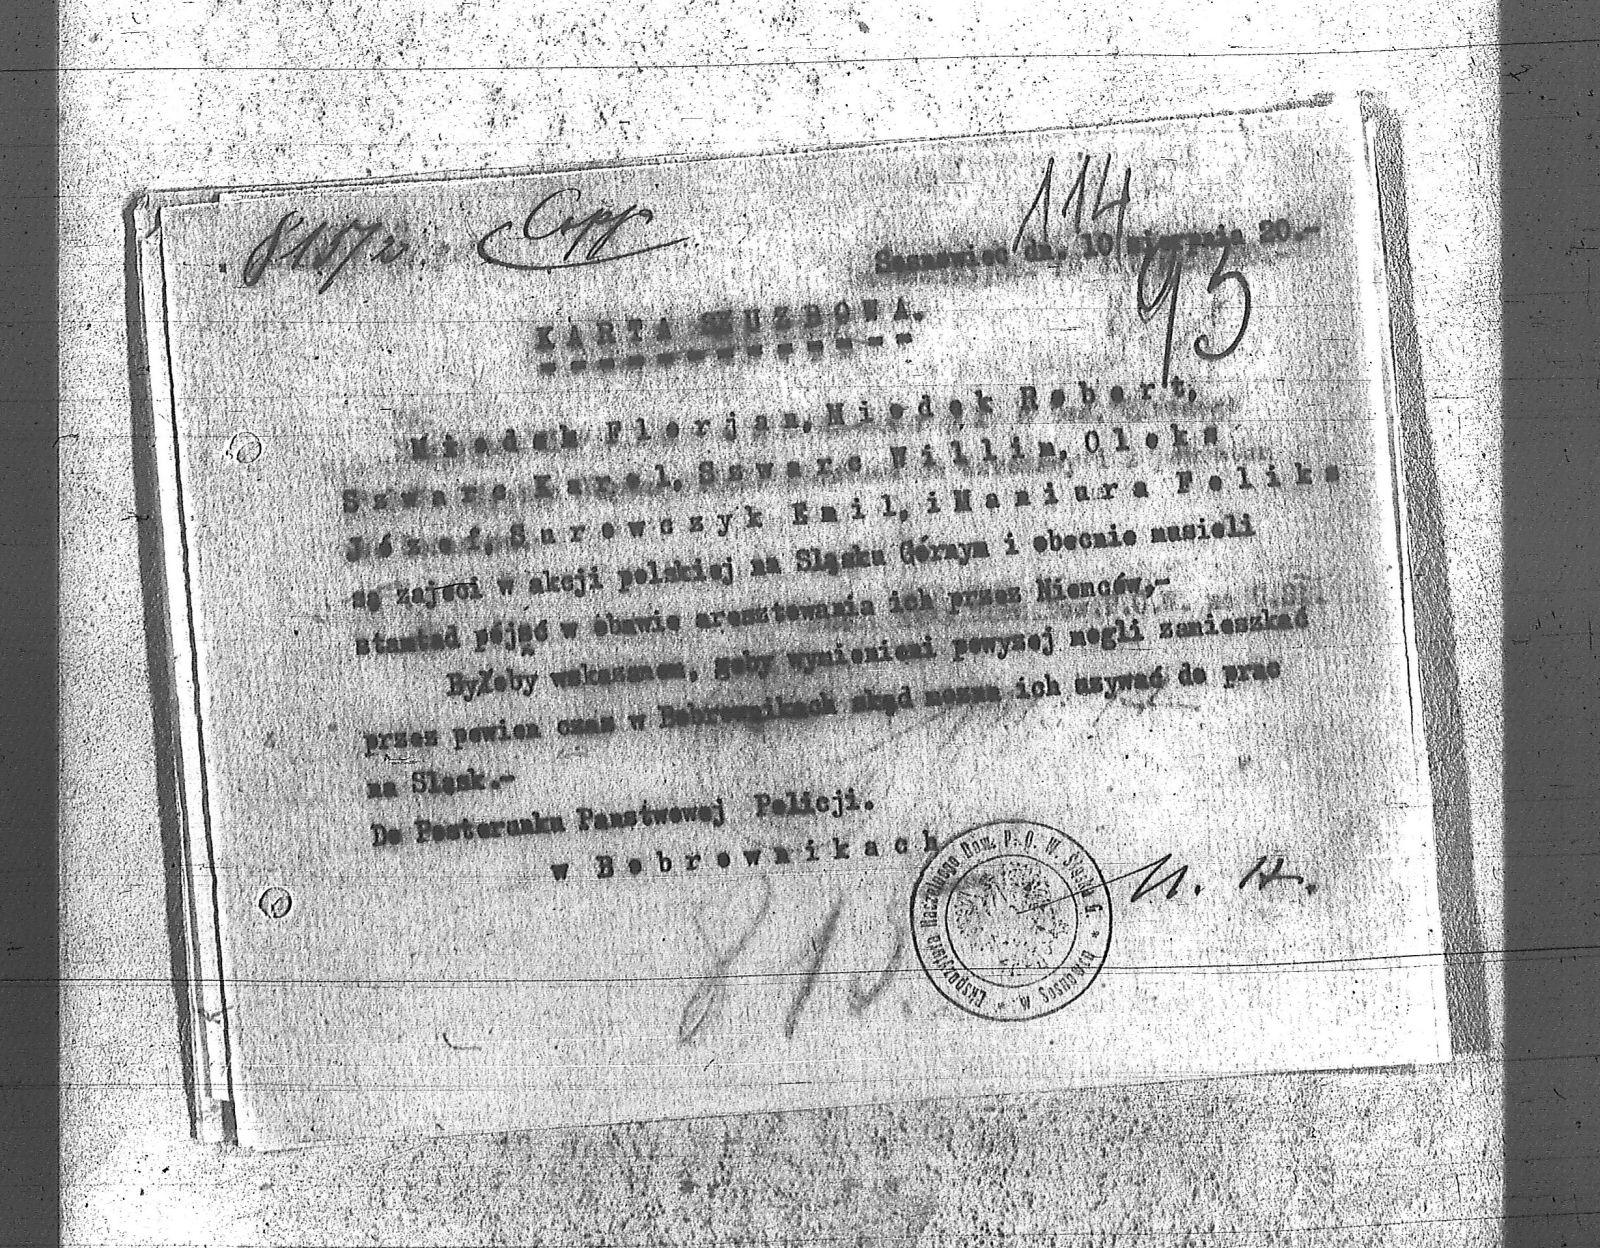 8157/2 Copp
114
Sosnowiec dn. 10 sierpnia 20.-
95
KARTA SŁUZBOWA.
Miedek Florjan, Miedek Robert,
Szwarc Karol, Szwarc Willim, Oleks
Józef, Surowczyk Emil, i Maniura Feliks
są zajęci w akcji polskiej na Sląsku Górnym i obecnie musieli
stamtad pójść w obawie aresztowania ich przez Niemców,-
Byłoby wskazanem, geby wymienieni powyzej mogli zamieszkać
przez pewien czas w Bobrownikach skąd mozna ich uzywać do prac
na Sląsk.-
Do Posterunku Panstwowej Policji.
w Bobrownikach
Ekspozytura Naczelnego Dow. P. O. W. Śląska G. * w Sosnowcu *